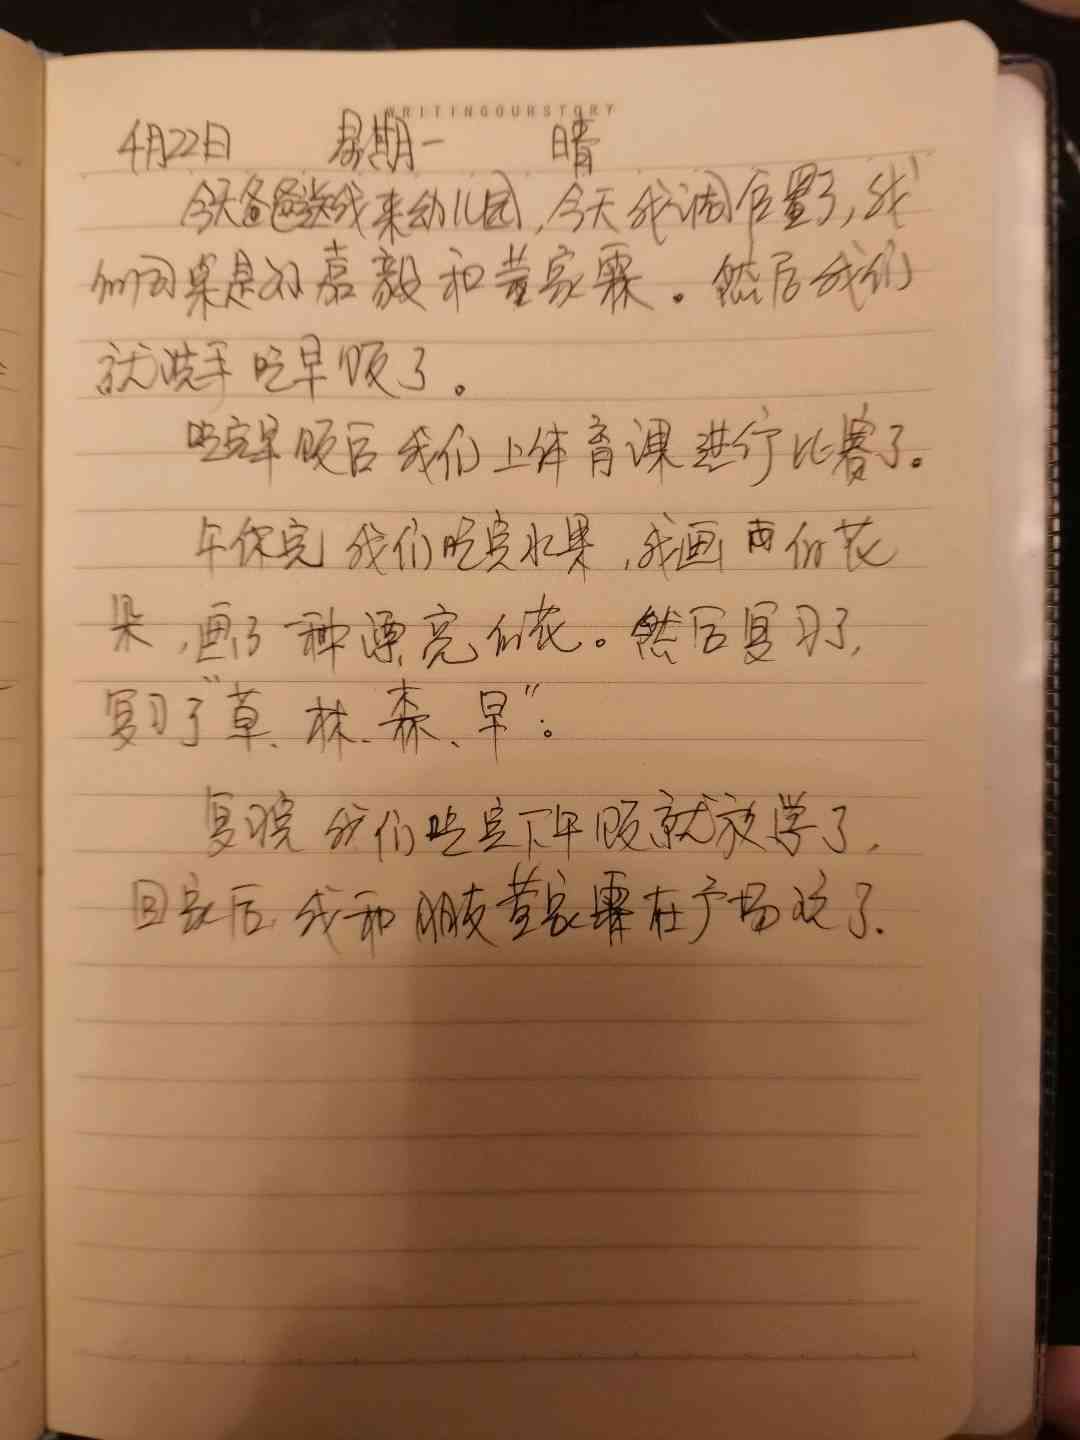 WRITINGOURSTORY
4月22日 星期一 晴
今天爸爸送我来幼儿园,今天我调位置了,我
的同桌是刘嘉毅和董家霖。然后我们
就洗手吃早饭了。
吃完早饭后我们上体育课进行比赛了。
午休完我们吃完水果,我画画的花
朵,画了一种漂亮的花。然后复习了,
复习了“草、林、森、早”。
复习完我们吃完下午饭就放学了,
回家后我和朋友董家霖在广场玩了.